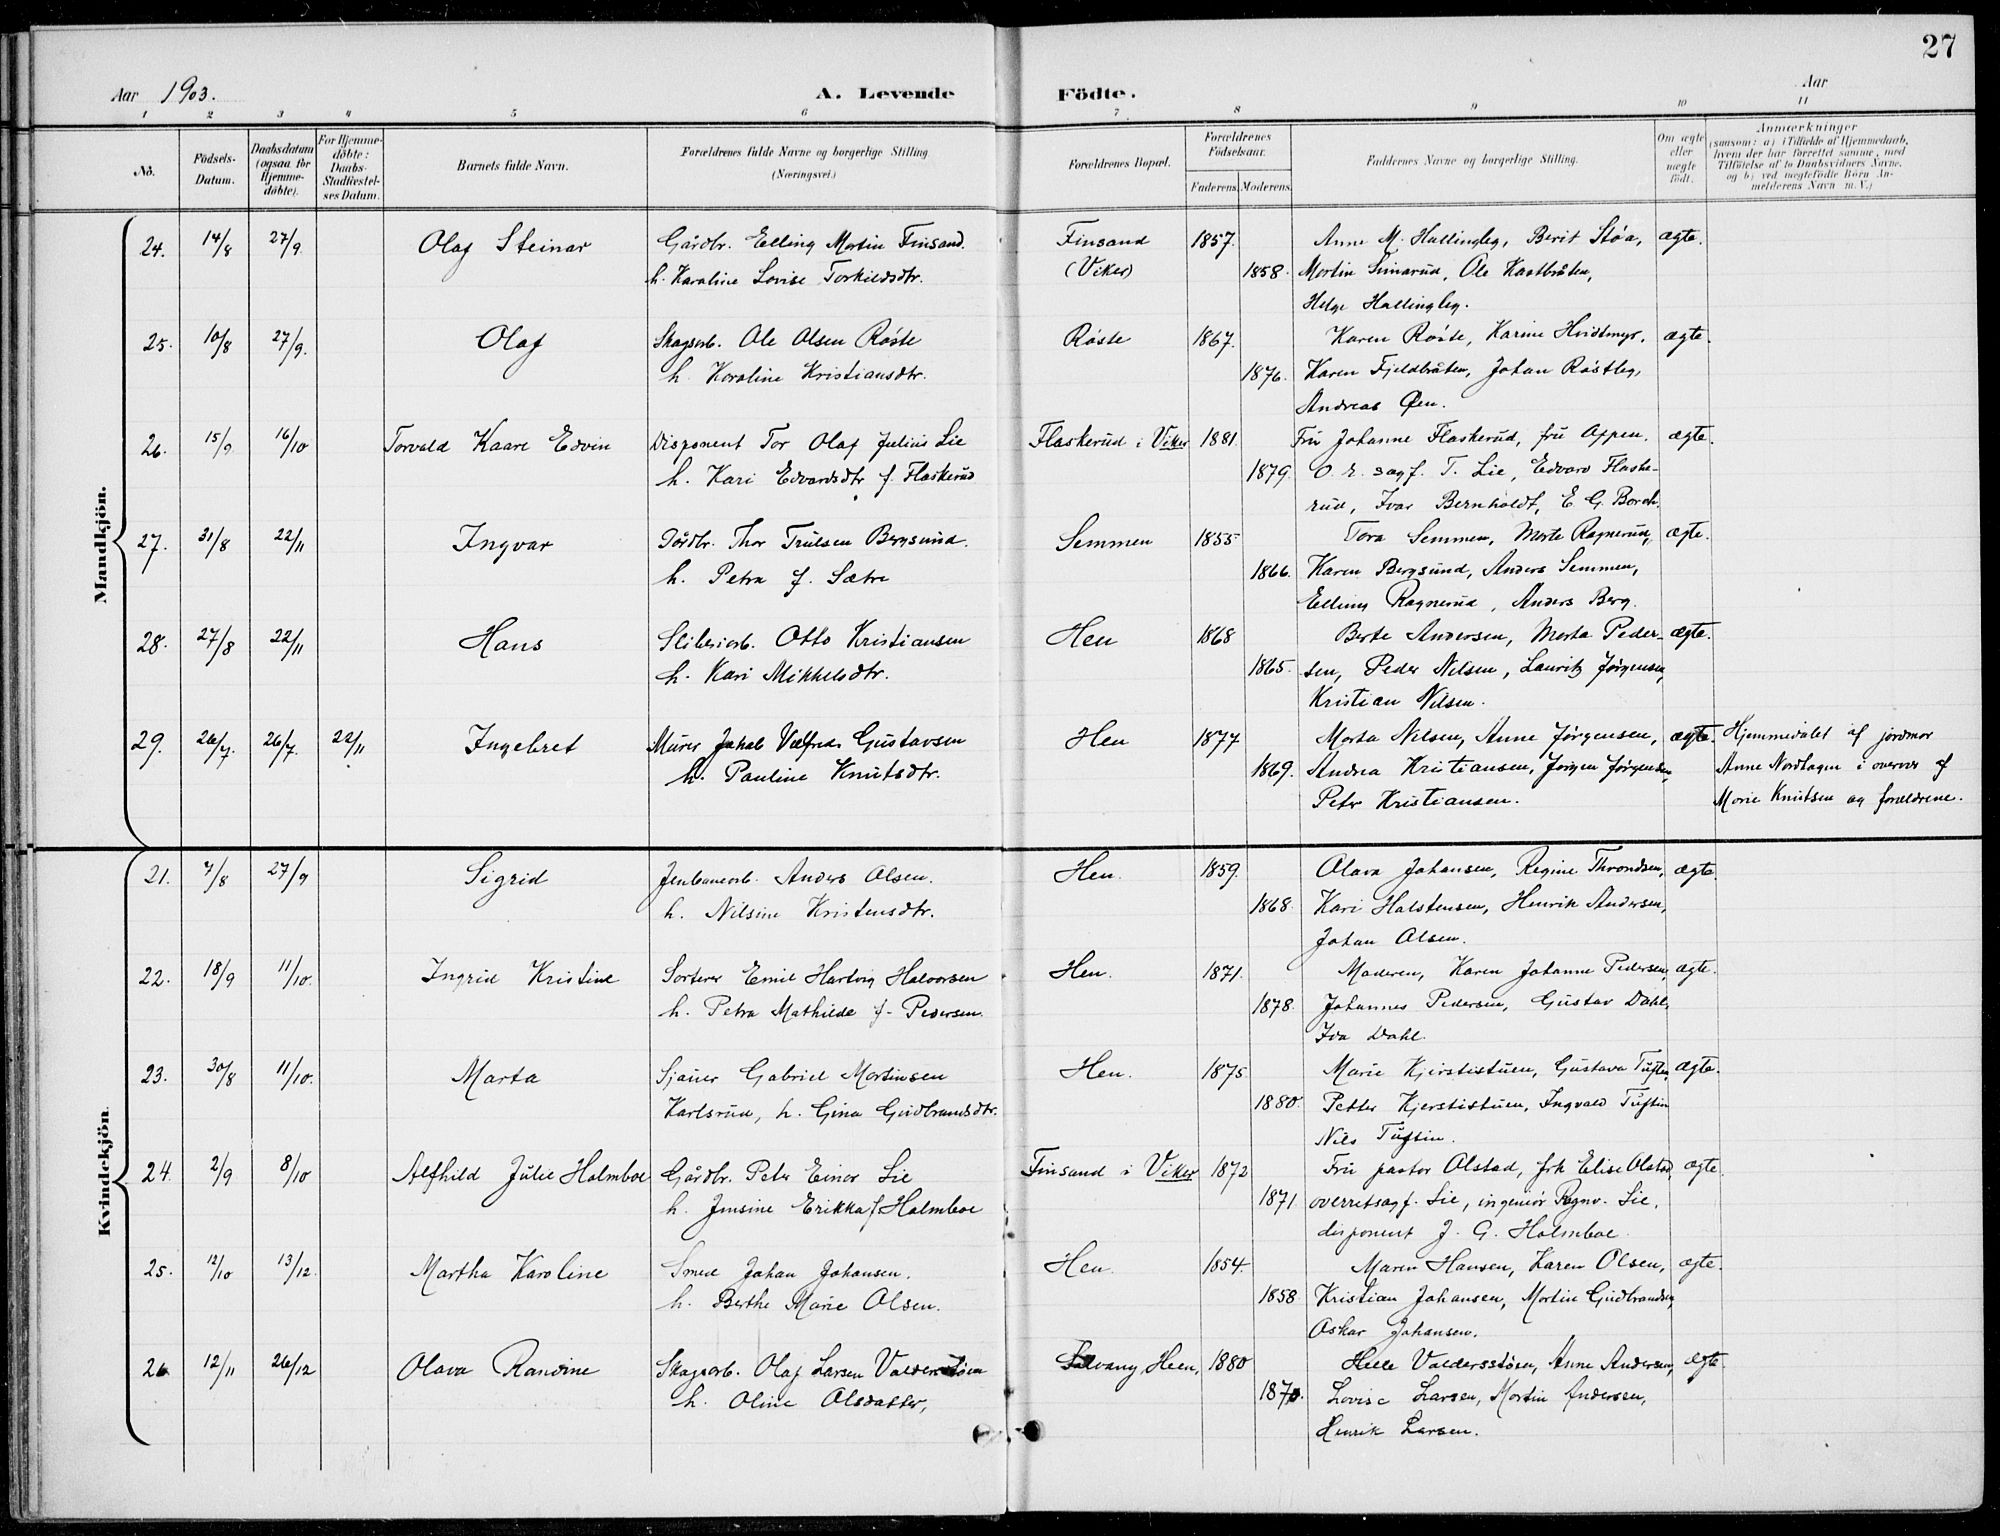 27
Aar 1903. A. Levende Födte. Aar
1 2 3 4 5 6 7 8 9 10 11
No.
Födsels-Datum.
Daabsdatum (ogsaa for Hjemme-döbte).
For Hjemme-döbte: Daabs-Stadfæstel-ses Datum.
Barnets fulde Navn.
Forældrenes fulde Navne og borgerlige Stilling (Næringsvei.)
Forældrenes Bopæl.
Forældrenes Födselsaar.
Faderens. Moderens.
Faddernes Navne og borgerlige Stilling.
Om ægte eller uægte födt.
Anmærkninger
(saasom: a) i Tilfælde af Hjemmedaab,
hvem der har forrettet samme, med
Tilföielse af to Daabsvidners Navne,
og b) ved uægtefödte Börn An-
melderens Navn m. V.)
Mandkjön.
24. 14/8 27/9. Olaf Steinar Gårdbr. Elling Martin Finsand. Finsand 1857. Anne M. Hallingby, Berit Støa, ægte.
h. Karoline Lovise Torkildsdtr. (Viker) 1858. Martin Simarud, Ole Kastbråten,
Helge Hallingby.
25. 10/8 27/9. Olaf Skogsarb. Ole Olsen Røste Røste 1867. Karen Røste, Karine Hvidtmyr, ægte.
h. Karoline Kristiansdtr. 1876. Karen Fjeldbråten, Johan Røstby,
Andreas Øen.
26. 15/9 16/10 Torvald Kaare Edvin Disponent Tor Olaf Julius Lie Flaskerud i Viker 1881. Fru Johanne Flaskerud, fru Appen. ægte.
h. Kari Edvardsdtr f. Flaskerud 1879. O. r. sagf. T. Lie, Edvard Flaske-
rud, Ivar Bernholdt, E. G. Borch.
27. 31/8 22/11 Ingvar Gårdbr. Thor Trulsen Bergsund. Semmen 1855 Tora Semmen, Marte Ragnerud, ægte.
h. Petra f. Sætre 1866. Karen Bergsund, Anders Semmen,
Elling Ragnerud, Anders Berg.
28. 27/8 22/11 Hans Sliberiarb. Otto Kristiansen Hen 1868 Berte Andersen, Marta Peder- ægte.
h. Kari Mikkelsdtr. 1865. sen, Peder Nilsen, Lauritz Jørgensen,
Kristian Nilsen.
29. 26/7. 26/7 22/11 Ingebret Murer Jakob Valfred Gustavsen Hen 1877 Marta Nilsen, Anne Jørgensen, ægte. Hjemmedøbt af jordmor
h. Pauline Knutsdtr. 1869. Andrea Kristiansen, Jørgen Jørgensen, Anne Nordhagen i overvær af
Peter Kristiansen. Marie Knutsen og forældrene.
Kvindekjön.
21. 7/8 27/9 Sigrid Jernbanearb. Anders Olsen. Hen. 1859. Olava Johansen, Regine Throndsen, ægte.
h. Nilsine Kristensdtr. 1868. Kari Halstensen, Henrik Andersen,
Johan Olsen.
22. 18/9 11/10. Ingrid Kristine Sorterer Emil Hartvig Halvorsen Hen. 1871. Moderen, Karen Johanne Pedersen, ægte.
h. Petra Mathilde f. Pedersen. 1878. Johannes Pedersen, Gustav Dahl,
Ida Dahl.
23. 30/8 11/10. Marta Sjauer Gabriel Martinsen Hen. 1875. Marie Kjerstistuen, Gustava Tuftin, ægte.
Karlsrud, h. Gina Gudbrandsdtr. 1880. Petter Kjerstistuen, Ingvald Tuftin
Nils Tuftin.
24. 2/9 8/10 Alfhild Julie Holmboe Gårdbr. Peter Einar Lie Finsand i Viker 1872 Fru pastor Alstad, frk Elise Alstad, ægte.
h. Jensine Erikka f Holmboe 1871. overretsagf. Lie, ingeniør Ragnv. Lie,
disponent J. G. Holmboe.
25. 12/10 13/12. Martha Karoline Smed Johan Johansen. Hen. 1854. Maren Hansen, Karen Olsen, ægte.
h. Berthe Marie Olsen. 1858 Kristian Johansen, Martin Gudbrandsen,
Oskar Johansen.
26 12/11 26/12 Olava Randine Skogsarb. Olaf Larsen Valdersstøen Hen, 1880 Helle Valdersstøen, Anne Andersen, ægte
h. Oline Olsdatter, Lovise Larsen, Martin Andersen,
Henrik Larsen.